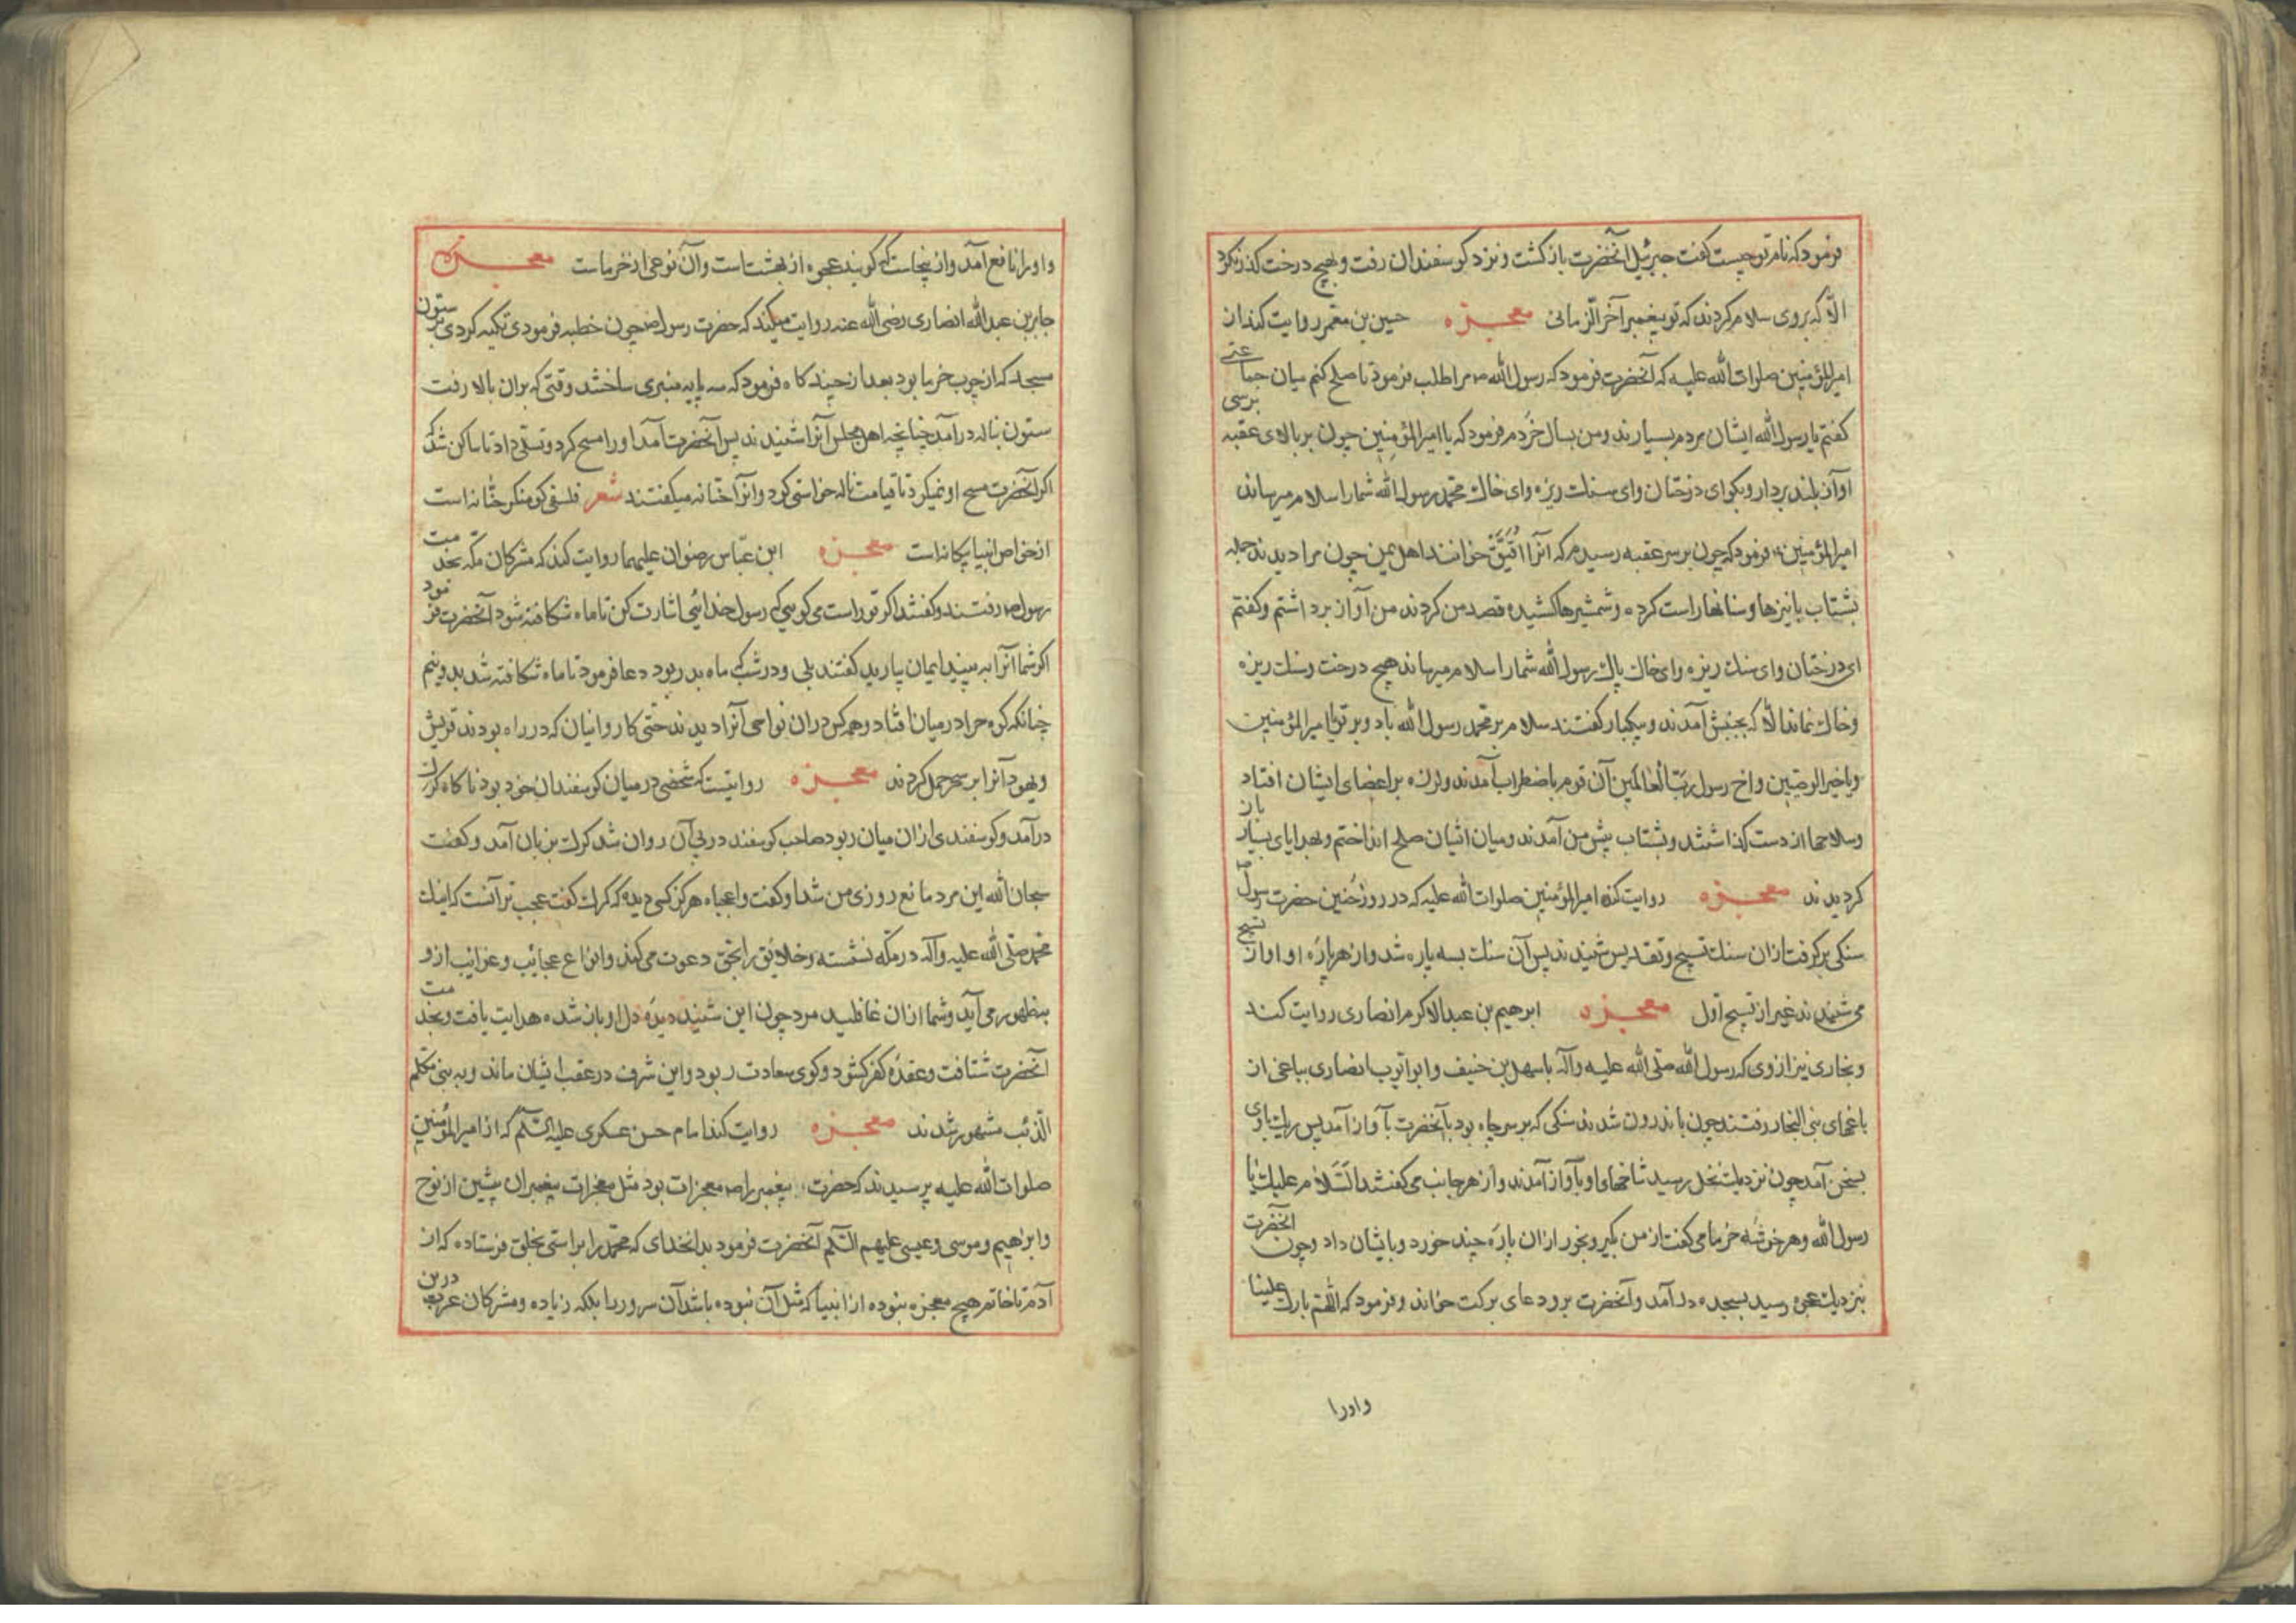 فرمود که نام تو چیست گفت جبرئیل آنحضرت باز کشت و نزد کوسفندان رفت و بهیچ درخت کذر نکرد
الّا که بروی سلام کردند که تو پیغمبر آخر الزمانی معجزه حسین بن معمر روایت کند از
امیرالمؤمنین صلوات الله علیه که آنحضرت فرمود که رسول الله ص مرا طلب فرمود تا صلح کنم میان جماعتی
کفتم یا رسول الله ایشان مردم بسیارند و من بسال خُردم فرمود که یا امیرالمؤمنین چون بر بالای عقبه برسی
آواز بلند بردار و بکو ای درختان و ای سنک ریزه و ای خاک محمد رسول الله شما را سلام میرساند
امیرالمؤمنین فرمود که چون بر سر عقبه رسیدم که آنرا اَفیَق خوانند اهل یمن چون مرا دیدند جمله
بشتاب با نیزها و سنانها راست کرده و شمشیرها کشیده قصد من کردند من آواز برداشتم و کفتم
ای درختان و ای سنک ریزه و ای خاک پاک رسول الله شما را سلام میرساند هیچ درخت و سنک ریزه
و خاک نماند الّا که بجنبش آمدند و بیکبار کفتند سلام بر محمد رسول الله باد و بر تو یا امیرالمؤمنین
و یا خیر الوصیین و اخ رسول ربّ العالمین آن قوم باضطراب آمدند و لرزه بر اعضای ایشان افتاد
و سلاحها از دست کذاشتند و بشتاب پیش من آمدند و میان ایشان صلح انداختم و بهدایای بسیار باز
کردیدند معجزه روایت کند امیرالمؤمنین صلوات الله علیه که در روز حُنین حضرت رسول ص
سنکی برکرفت از آن سنک تسبیح و تقدیس شنیدند پس آن سنک بسه پاره شد و از هر پارۀ او آواز تسبیح
می شنیدند غیر از تسبیح اول معجزه ابرهیم بن عبد الاکرم انصاری روایت کند
و بخاری نیز از وی که رسول الله صلی الله علیه وآله با سهل بن حنیف و ابو ایوب انصاری بباغی از
باغهای بنی النجار رفتند چون باندرون شدند سنکی که بر سر چاه بود با آنحضرت بآواز آمد پس ریک با وی
بسخن آمد چون نزدیک نخل رسید شاخهای او بآواز آمدند و از هر جانب می کفتند السّلام علیک یا
رسول الله و هر خوشه خرما می کفت از من بکیر و بخور از آن پارۀ چند خورد و بایشان داد و چون آنحضرت
بنزدیک عجوه رسید بسجده در آمد و آنحضرت برو دعای برکت خواند و فرمود که اللهم بارک علینا
و اورا
و او را نافع آمد و از ینجاست که کویند عجوه از بهشتست و آن نوعی از خرماست معجزه
جابر بن عبدالله انصاری رضی الله عنه روایت میکند که حضرت رسول ص چون خطبه فرمودی تکیه کردی بر ستون
مسجد که از چوب خرما بود بعد از چند کاه فرمود که سه پایه منبری ساختند وقتی که بران بالا رفت
ستون بناله درآمد چنانچه اهل مجلس آنرا شنیدند پس آنحضرت آمد او را مسح کرد و تسلی داد تا ساکن شد که
اکر آنحضرت مسح او نمیکرد تا قیامت ناله خواستی کرد و آنرا حنّانه میکفتند شعر فلسفی کو منکر حنّانه است
از خواص انبیا بیکانه است معجزه ابن عبّاس رضوان علیهما روایت کند که مشرکان مکّه بخدمت
رسول ص رفتند و کفتند اکر تو راست می کویی که رسول خدائی اشارت کن تا ماه شکافته شود آنحضرت فرمود
اکر شما آنرا به بینید ایمان بیارید کفتند بلی و در شب که ماه بدر بود دعا فرمود تا ماه شکافته شد بدو نیم
چنانکه کوه حرا در میان افتاد و همه کس دران نواحی آنرا دیدند حتّی کاروانیان که در راه بودند قریش
و یهود آنرا بر سحر حمل کردند معجزه روایتست که شخصی در میان کوسفندان خود بود ناکاه کرک
درآمد و کوسفندی از ان میان ربود صاحب کوسفند در پی آن روان شد کرک بزبان آمد و کفت
سبحان الله این مرد مانع روزی من شد او کفت واعجباه هرکز کسی دیده که کرک کفت عجب تر آنست که اینک
محمد صلّی الله علیه وآله در مکّه نشسته و خلایق را بحق دعوت می کند و انواع عجایب و غرایب از و
بظهور می آید و شما از ان غافلید مرد چون این شنید دیدۀ دل او باز شده هدایت یافت و بخدمت
آنحضرت شتافت و عقدۀ کفر کشود و کوی سعادت ربود و این شرف در عقب ایشان ماند و به بنی مکلّم
الذئب مشهور شدند معجزه روایت کند امام حسن عسکری علیه السّلام که از امیر المؤمنین
صلوات الله علیه پرسیدند که حضرت پیغمبر را ص معجزات بود مثل معجزات پیغمبران پیشین از نوح
و ابرٰهیم و موسی و عیسی علیهم السّلام آنحضرت فرمود بدانخدای که محمّد را براستی بخلق فرستاده که از
آدم تا خاتم هیچ معجزه نبوده از انبیا که مثل آن نبوده باشد آن سرور را بلکه زیاده و مشرکان عرب درین